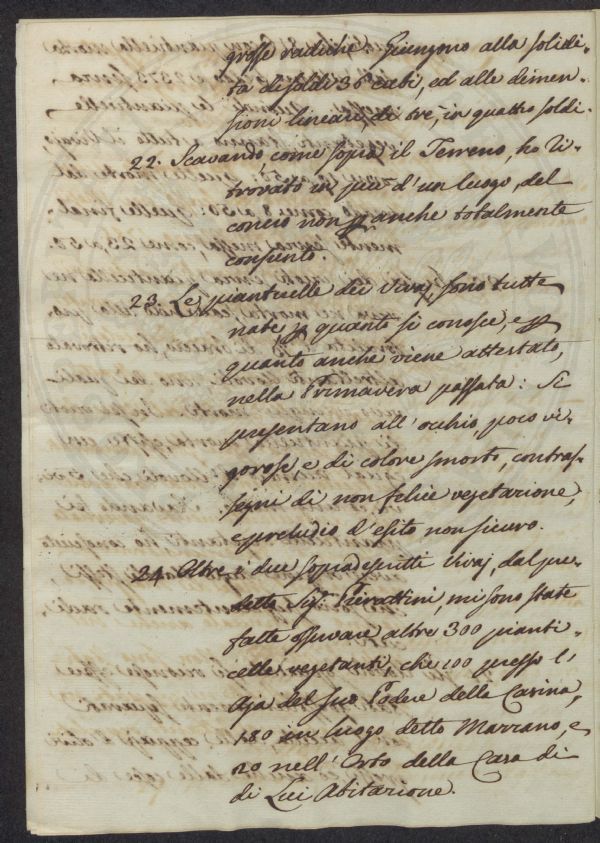 grosse radiche Giungono alla solidi=
tà di soldi 36 cubi, ed alle dimen=
sioni lineari, di tre, in quattro soldi.
22. Scavando come sopra il Terreno, ho ri=
trovato in più d'un luogo, del
concio non p anche totalmente
consunto.
23. Le pianticelle dei Vivaj, sono tutte
nate, p quanto si conosce, e p
quanto anche viene attestato,
nella Primavera passata: Si
presentano all'occhio, poco vi=
gorose e di colore smorto, contras=
segni di non felice vegetazione,
e preludio d'esito non sicuro.
24. Oltre, i due sopradescritti Vivaj, dal pre=
detto Sig.r Pierattini, mi sono state
fatte osservare altre 300 pianti=
celle vegetanti, che 100 presso l'
Aja del suo Podere della Casina,
180 in luogo detto Marrano, e
20 nell'Orto della Casa di
di Lui Abitazione.